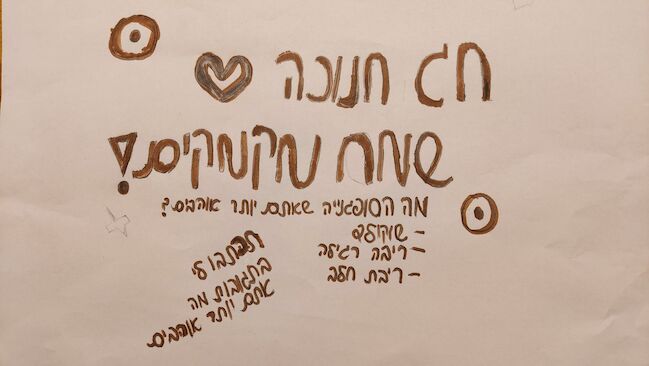 חג חנוכה
שמח מקמקים!
מה הסופגנייה שאתם יותר אוהבים?
- שוקולד
- ריבה רגילה
- ריבת חלב
תכתבו לי
בתגובות מה
אתם יותר אוהבים